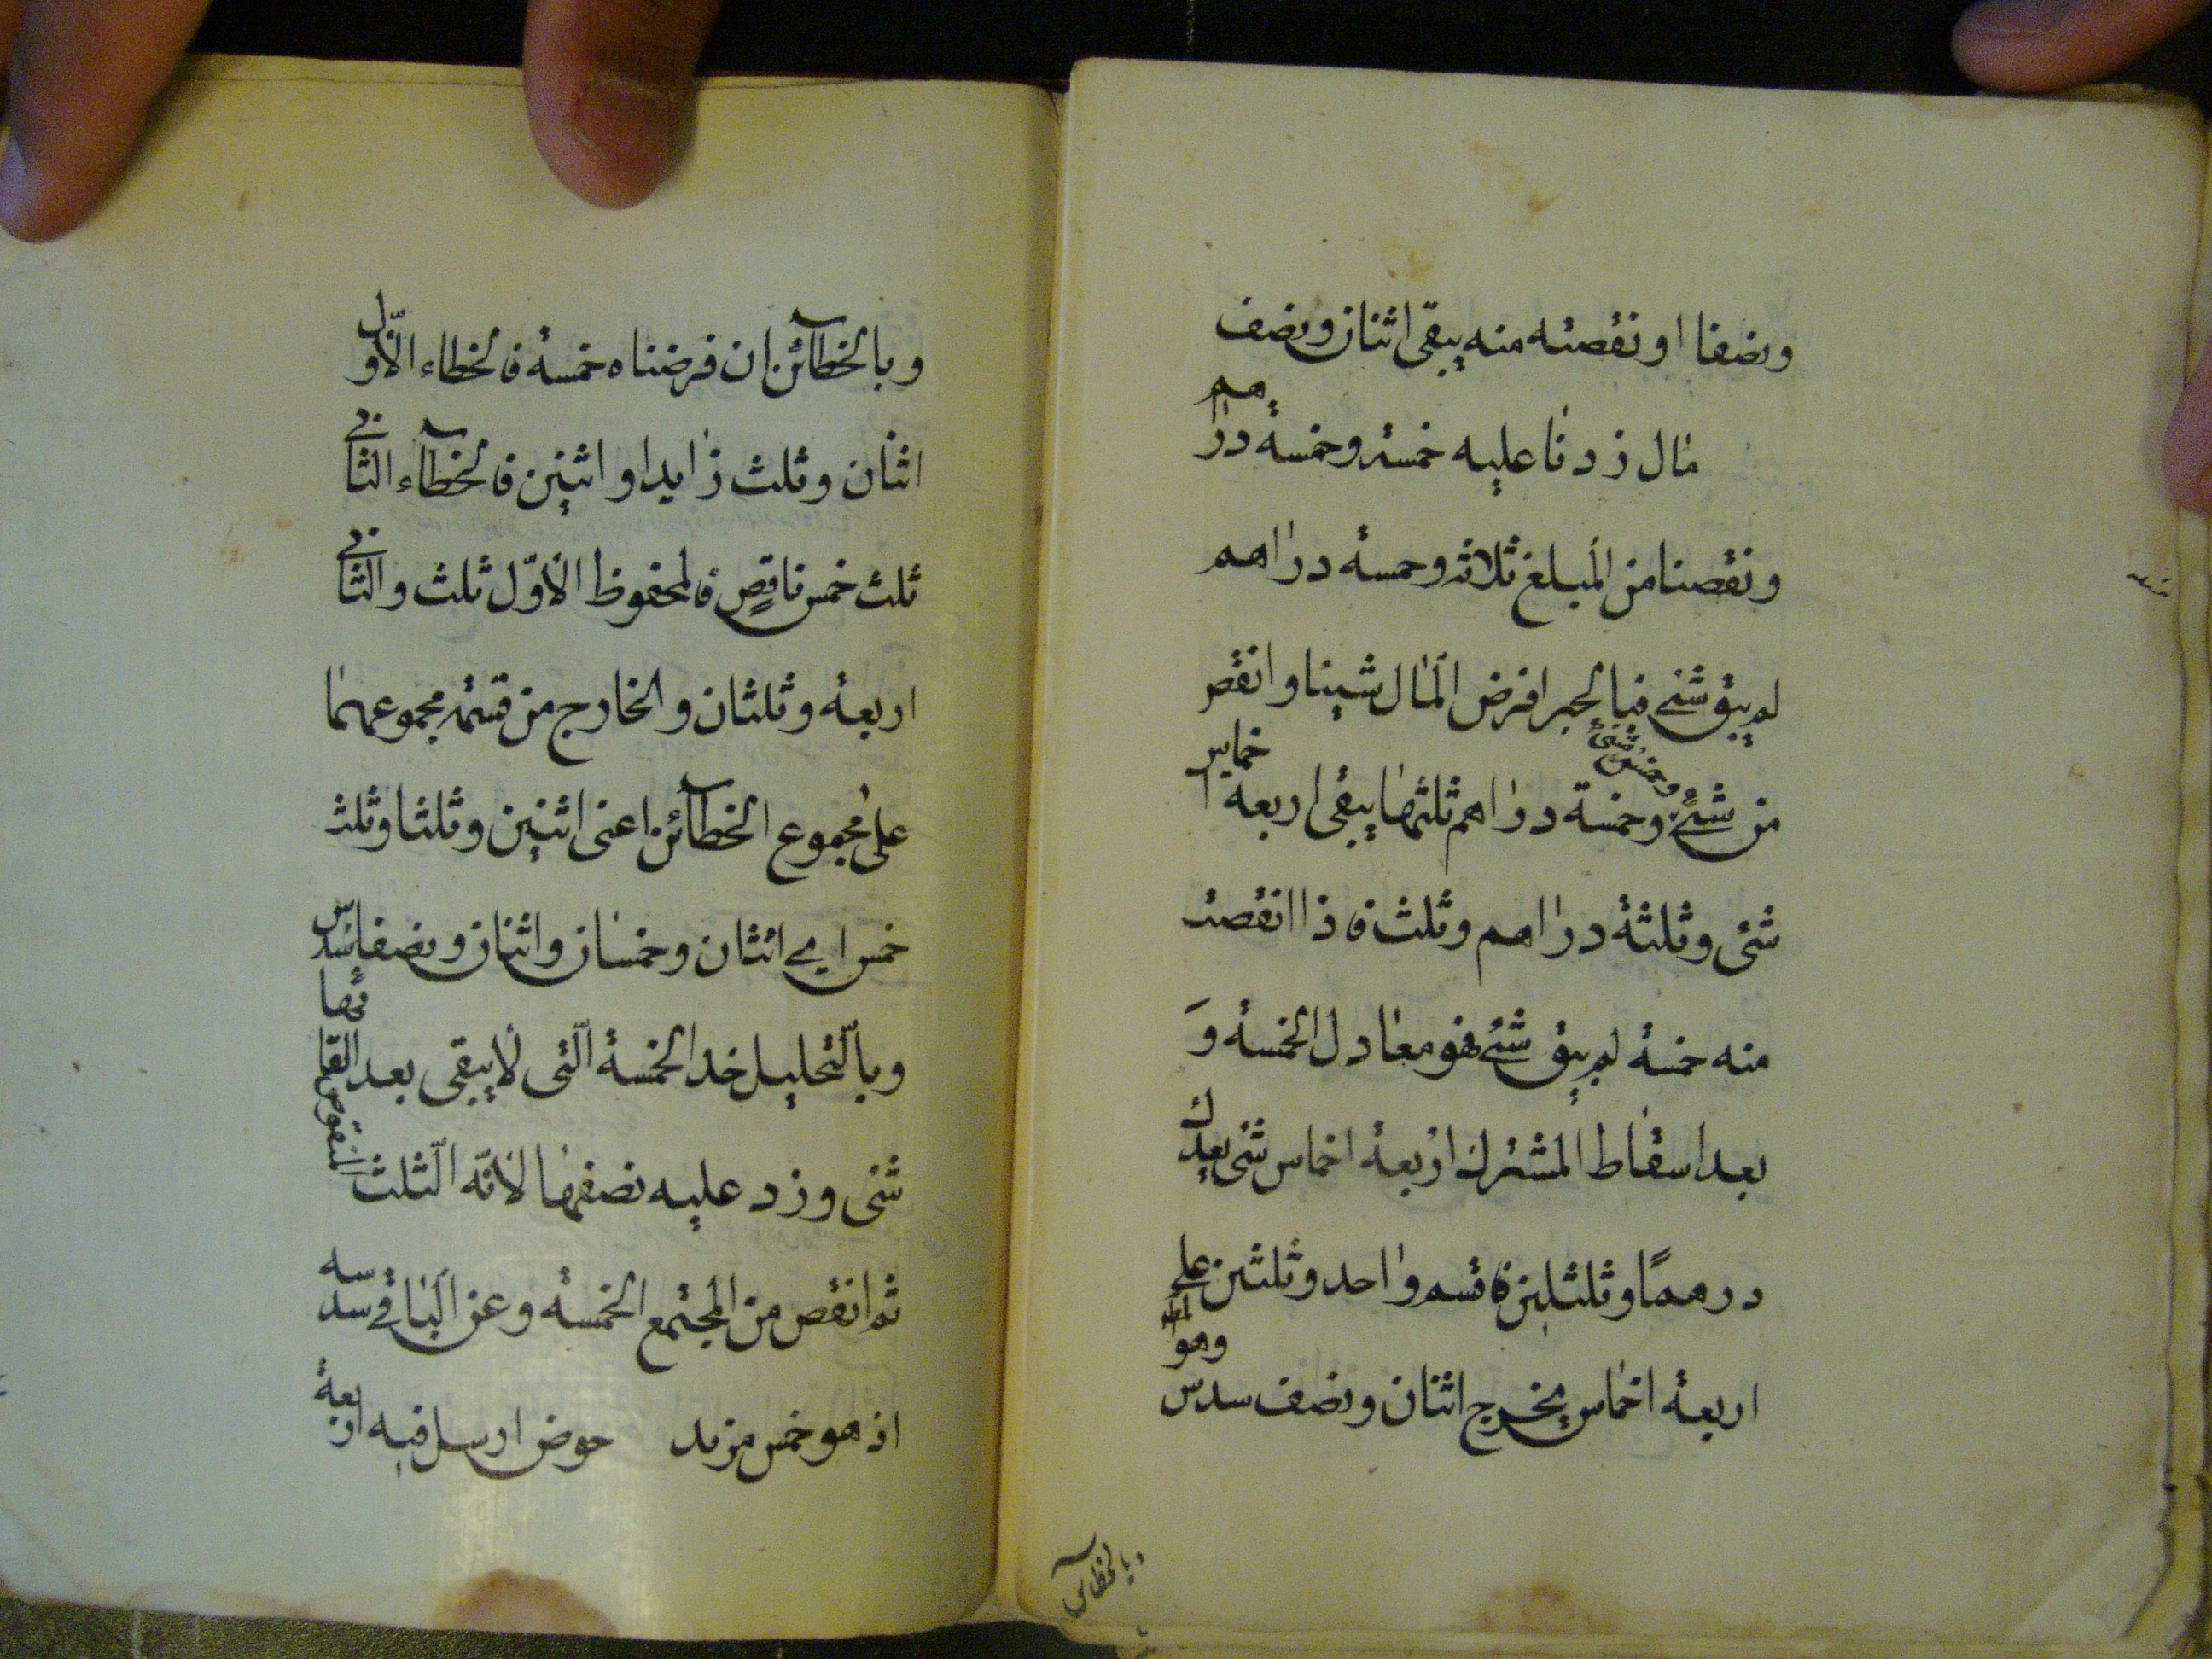 ونصفا او نقصته منه يبقى اثنان ونصف
مال زدنا عليه خمسه وخمسة دراهم
ونقصنا من المبلغ ثلاثه وخمسة دراهم
لم يبق شئ فبالجبر افرض المال شيئا وانقص
من شئ وخمس شئ وخمسة دراهم ثلثها يبقى اربعة اخماس
شئ وثلثة دراهم وثلث فاذا انقصت
منه خمسة لم يبق شئ فهو معادل الخمسة وَ
بعد اسقاط المشترك اربعة اخماس شئ يعدل
درهمًا وثلثين فاقسم واحد وثلثين على
اربعة اخماس يخرج اثنان ونصف سدس وهو
وبالخطآئن
وبالخطآئن ان فرضناه خمسة فالخطاء الاوّل
اثنان وثلث زايدا و اثنين فالخطآء الثانى
ثلث خمس ناقصٍ فالمحفوظ الاوّل ثلث والثانى
اربعة وثلثان والخارج من قسمة مجموعهما
على مجموع الخطآئن اعنى اثنين وثلثا وثلث
خمس اثنان ونصف سدس
وبالتحليل خذ الخمسة الّتى لا يبقى بعد القائها
شئ وزد عليه نصفها لانّه الثلث المنقوص
ثم انقص من المجتمع الخمسة وعن الباقى سدسه
اذ هو خمس مزيد حوض ارسل فيه اربعة